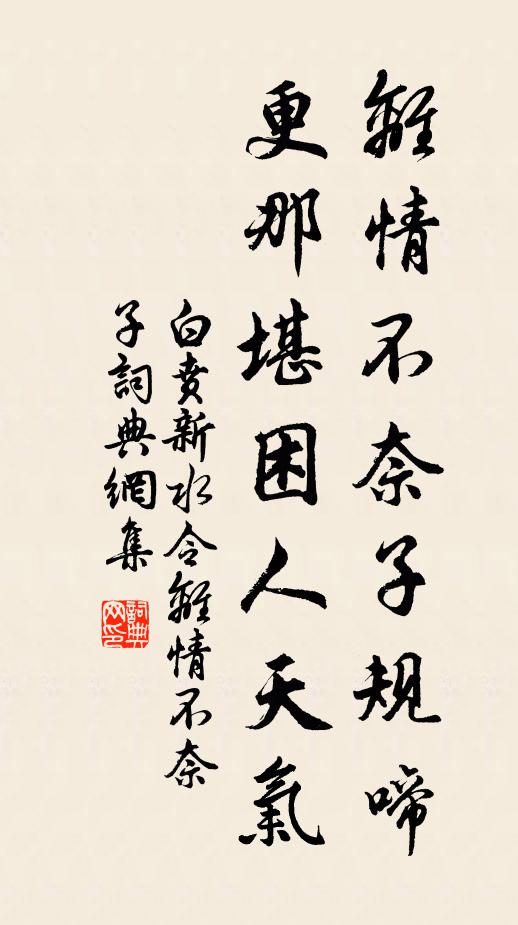 離情不奈子規啼
更那堪困人天氣
白賁新水令離情不奈
子詞典網集
詞典
网印